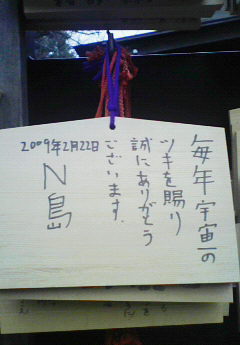 毎年宇宙の
ツキを賜り
誠にありがとう
ございます.
2009年2月22日
N島